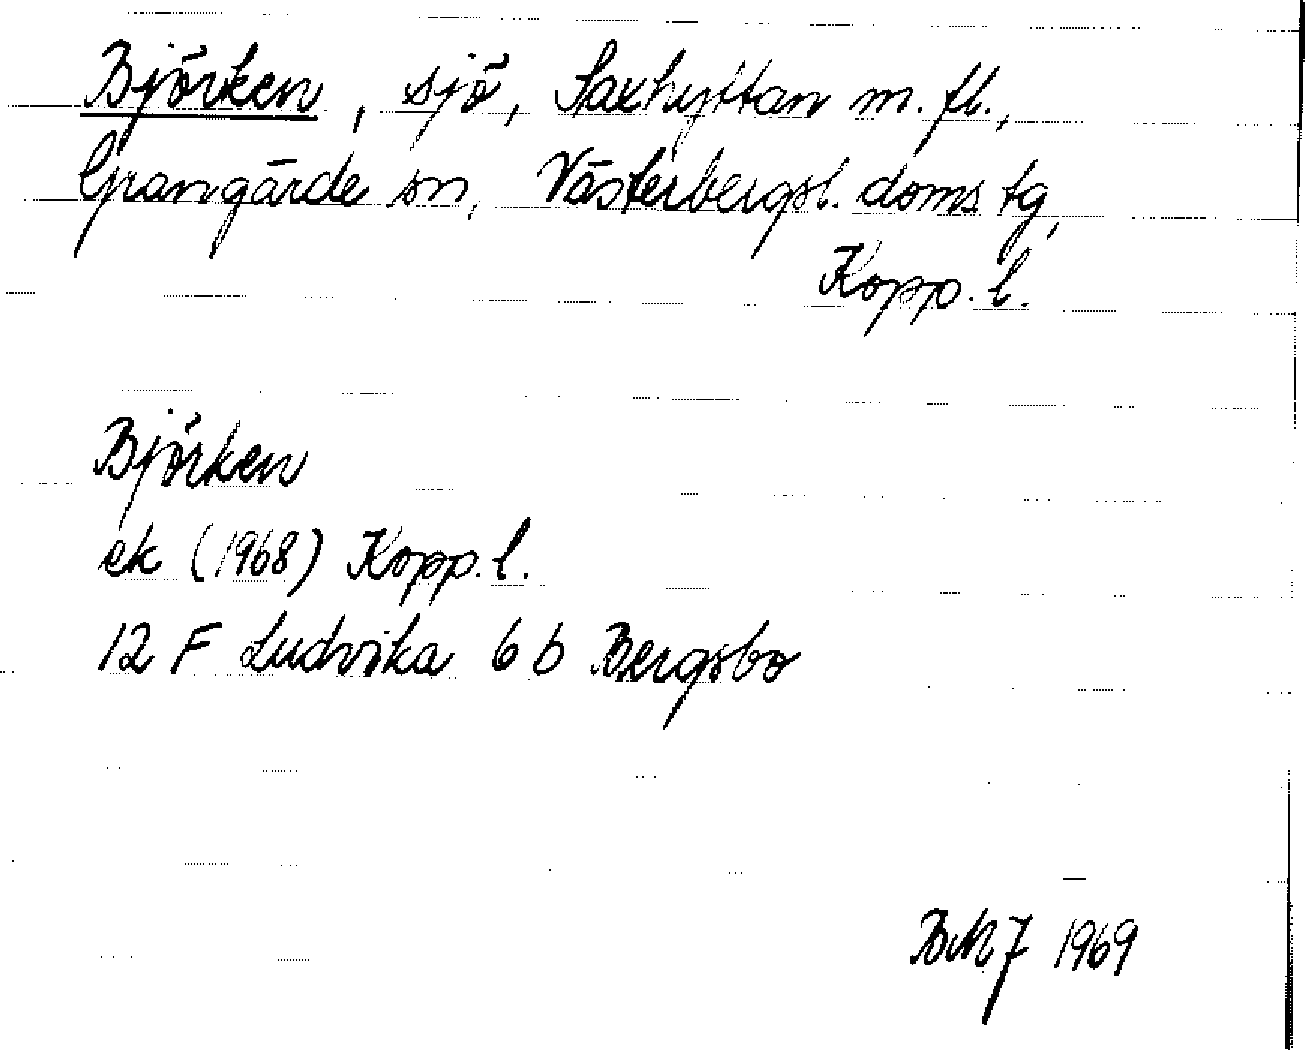 Björken, sjö, Saxhyttan m. fl.,
Grangärde sn, Västerbergsl. doms. tg,
Kopp. l.
Björken
ek (1968) Kopp. l.
12 F Ludvika 6 b Bergsbo
1969